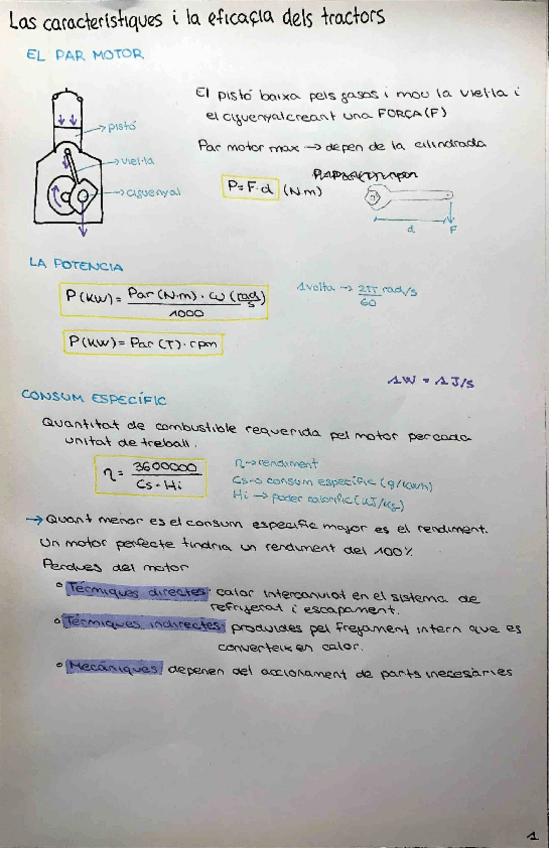 Las característiques i la eficacia dels tractors
EL PAR MOTOR
El pistó baixa pels gasos i mou la viel·la i
el ciguenyal creant una FORÇA (F)
pistó
viel·la
ciguenyal
Par motor max → depen de la cilindrada
P = F·d (N·m)
d
F
LA POTENCIA
P(kW) = Par (N·m) · ω (rad/s) / 1000
1 volta → 2π/60 rad/s
P(kW) = Par (T) · rpm
1W = 1J/s
CONSUM ESPECÍFIC
Quantitat de combustible requerida pel motor per cada
unitat de treball.
η = 3600000 / Cs · Hi
η → rendiment
Cs → consum específic (g/kWh)
Hi → poder calorific (kJ/kg)
→ Quant menor es el consum especific major es el rendiment.
Un motor perfecte tindria un rendiment del 100%
Perdues del motor
° Tèrmiques directes: calor intercanviat en el sistema de
refrigerat i escapament.
° Tèrmiques indirectes: produides pel fregament intern que es
converteix en calor.
° Mecàniques: depenen del accionament de parts necesàries
1